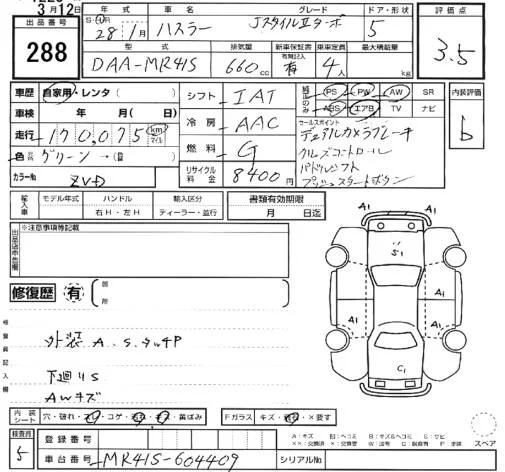 3月12日
出品番号
288
年式 車名 グレード ドア・形状 評価点
28年1月 ハスラー JスタイルⅡターボ 5 3.5
型式 排気量 新車保証書 有無記入 乗車定員 最大積載量
DAA-MR41S 660cc 有 4人 kg
車歴 自家用・レンタ( )
車検 年 月( 日)
走行 170,075 km マイル
色 グリーン
カラーNo. ZVD
シフト IAT
冷房 AAC
燃料 G
リサイクル料金 8400円
純正のみ PS PW AW SR
ABS エアB TV ナビ
内装評価
b
セールスポイント
デュアルカメラブレーキ
クルーズコントロール
パドルシフト
プッシュスタートボタン
輸入車 モデル年式 ハンドル 輸入区分 書類有効期限
右H・左H ディーラー・並行 月 日迄
出品店申告欄
※注意事項等記載
修復歴 有
箇所
検査員記入欄
外装 A.S.タッチP
下廻りS
AWキズ
A1 A1
S1
A1 A1
A1 A1
C1
内装シート 穴・破れ・スレ・コゲ・汚れ・キズ・黄ばみ
Fガラス キズ・要す
スペア
検査員 5
登録番号
車台番号 MR41S-604409
シリアルNo.